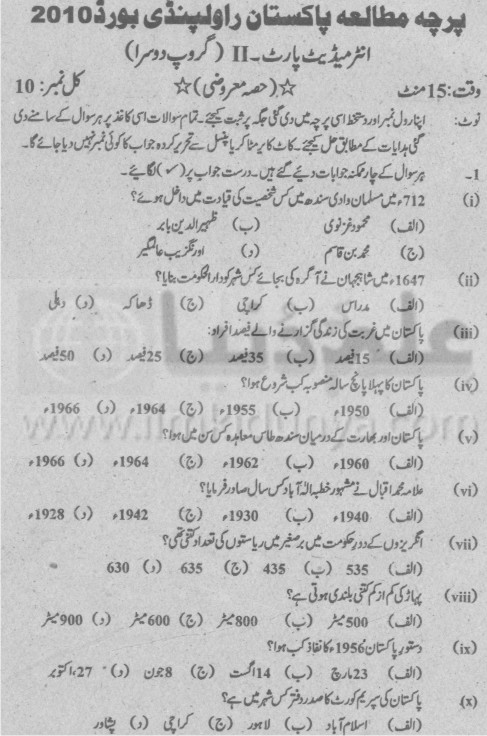 پرچہ مطالعہ پاکستان راولپنڈی بورڈ 2010
انٹرمیڈیٹ پارٹ۔ II (گروپ دوسرا)
وقت: 15 منٹ ☆(حصہ معروضی)☆ کل نمبر: 10
نوٹ: اپنا رول نمبر اور دستخط اسی پرچہ میں دی گئی جگہ پر ثبت کیجئے۔ تمام سوالات اسی کاغذ پر ہر سوال کے سامنے دی
گئی ہدایات کے مطابق حل کیجئے۔ کاٹ کا یا مٹا کر یا پنسل سے تحریر کردہ جواب کا کوئی نمبر نہیں دیا جائے گا۔
1۔ ہر سوال کے چار ممکنہ جوابات دیئے گئے ہیں۔ درست جواب پر (✓) لگائیے۔
(i) 712ء میں مسلمان وادی سندھ میں کس شخصیت کی قیادت میں داخل ہوئے؟
(الف) محمود غزنوی (ب) ظہیر الدین بابر
(ج) محمد بن قاسم (د) اورنگزیب عالمگیر
(ii) 1647ء میں شاہجہان نے آگرہ کی بجائے کس شہر کو دارالحکومت بنایا؟
(الف) مدراس (ب) کراچی (ج) ڈھاکہ (د) دہلی
(iii) پاکستان میں غربت کی زندگی گزارنے والے فیصد افراد:
(الف) 15 فیصد (ب) 35 فیصد (ج) 25 فیصد (د) 50 فیصد
(iv) پاکستان کا پہلا پانچ سالہ منصوبہ کب شروع ہوا؟
(الف) 1950ء (ب) 1955ء (ج) 1964ء (د) 1966ء
(v) پاکستان اور بھارت کے درمیان سندھ طاس معاہدہ کس سن میں ہوا؟
(الف) 1960ء (ب) 1962ء (ج) 1964ء (د) 1966ء
(vi) علامہ محمد اقبال نے مشہور خطبہ الٰہ آباد کس سال صادر فرمایا؟
(الف) 1940ء (ب) 1930ء (ج) 1942ء (د) 1928ء
(vii) انگریزوں کے دور حکومت میں برصغیر میں ریاستوں کی تعداد کتنی تھی؟
(الف) 535 (ب) 435 (ج) 635 (د) 630
(viii) پہاڑ کی کم از کم کتنی بلندی ہوتی ہے؟
(الف) 500 میٹر (ب) 800 میٹر (ج) 600 میٹر (د) 900 میٹر
(ix) دستور پاکستان 1956ء کا نفاذ کب ہوا؟
(الف) 23 مارچ (ب) 14 اگست (ج) 8 جون (د) 27، اکتوبر
(x) پاکستان کی سپریم کورٹ کا صدر دفتر کس شہر میں ہے؟
(الف) اسلام آباد (ب) لاہور (ج) کراچی (د) پشاور